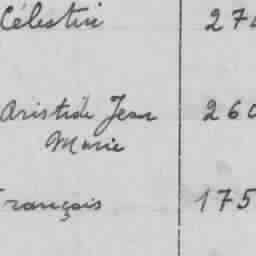 Célestin 27
Aristide Jean 260
Marie
François 175